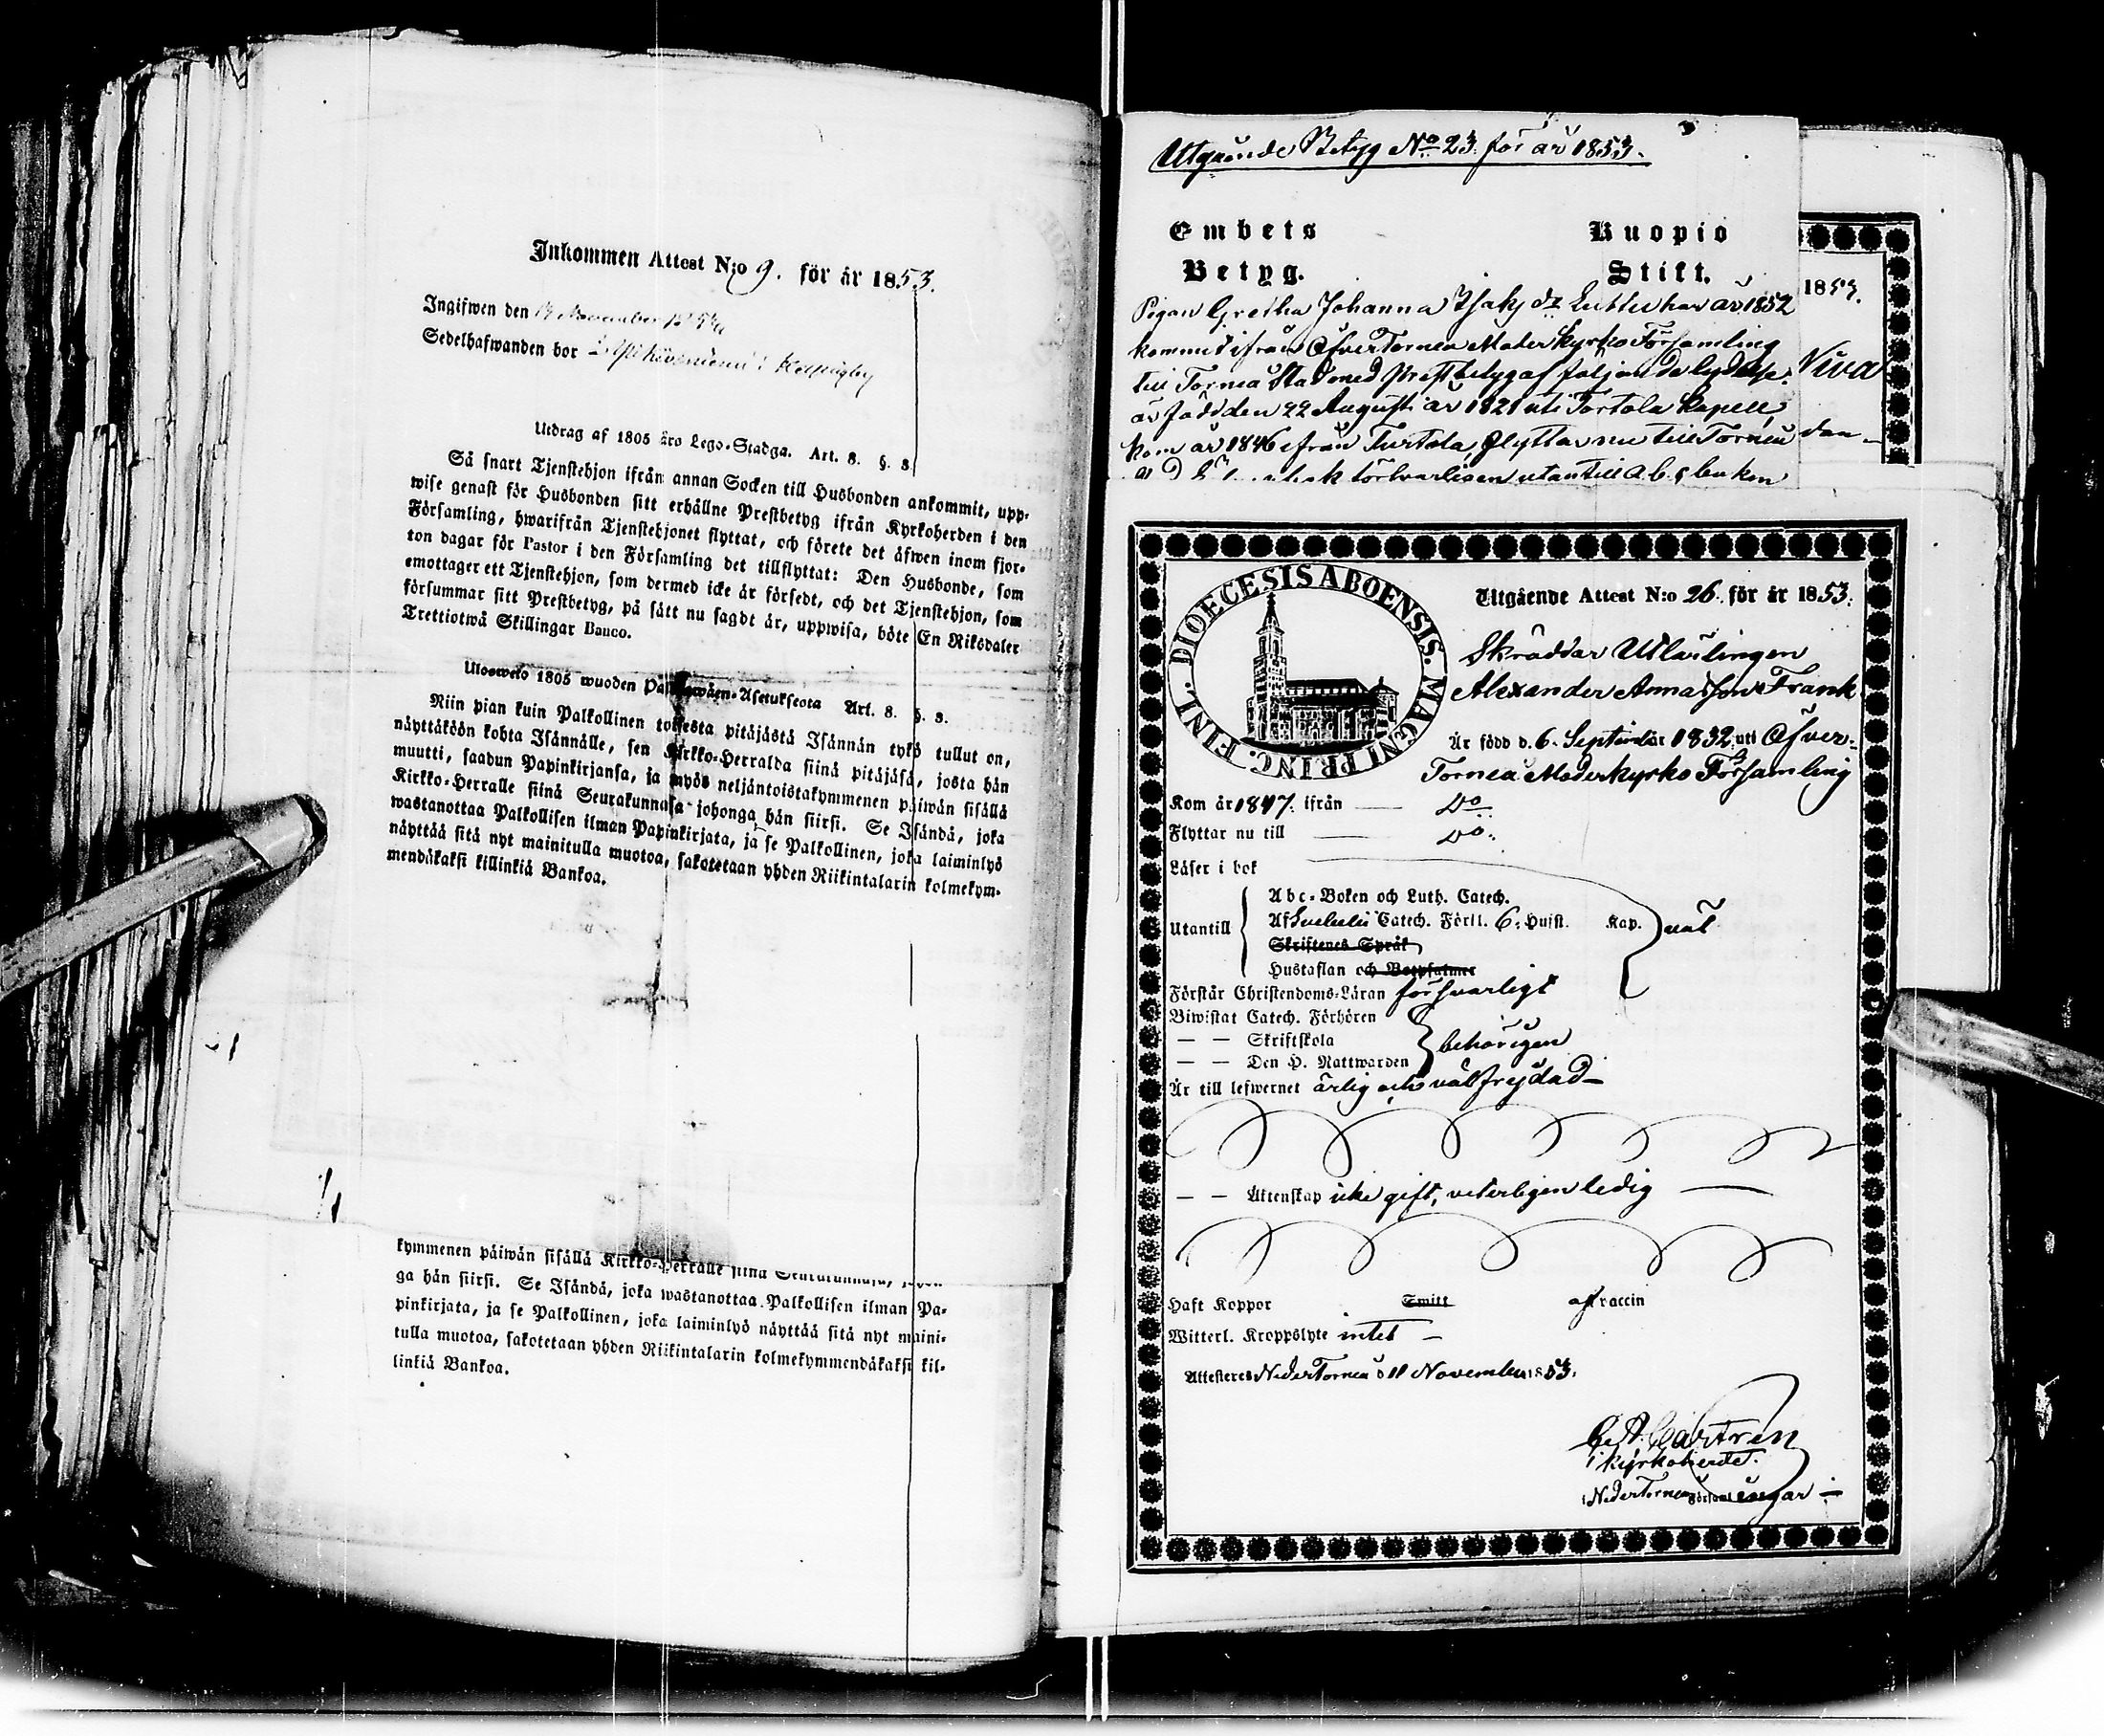 Inkommen Attest N:o 9. för år 1853.
Ingifwen den 14 November 1853
Sedelhafwanden bor
Utdrag af 1805 års Lego-Stadga. Art. 8. §. 8.
Så snart Tjenstehjon ifrån annan Socken till Husbonden ankommit, upp-
wise genast för Husbonden sitt erhållne Prestbetyg ifrån Kyrkoherden i den
Församling, hwarifrån Tjenstehjonet flyttat, och förete det äfwen inom fjor-
ton dagar för Pastor i den Församling det tillflyttat: Den Husbonde, som
emottager ett Tjenstehjon, som dermed icke är försedt, och det Tjenstehjon, som
försummar sitt Prestbetyg, på sätt nu sagdt är, uppwisa, böte En Riksdaler
Trettiotwå Skillingar Banco.
Ulosweto 1805 wuoden Art. 8. §. 8.
Niin pian kuin Palkollinen toisesta pitäjästä Isännän tykö tullut on,
näyttäköön kohta Isännälle, sen Kirkko-Herralda siinä pitäjäsä, josta hän
muutti, saadun Papinkirjansa, ja myös neljäntoistakymmenen päiwän sisällä
Kirkko-Herralle siinä Seurakunnasa johonga hän siirsi. Se Isändä, joka
wastanottaa Palkollisen ilman Papinkirjata, ja se Palkollinen, joka laiminlyö
näyttää sitä nyt mainitulla muotoa, sakotetaan yhden Riikintalarin kolmekym-
mendäkaksi killinkiä Bankoa.
kymmenen päiwän sisällä Kirkko-Herralle siinä Seurakunnasa,
ga hän siirsi. Se Isändä, joka wastanottaa Palkollisen ilman Pa-
pinkirjata, ja se Palkollinen, joka laiminlyö näyttää sitä nyt maini-
tulla muotoa, sakotetaan yhden Riikintalarin kolmekymmendäkaksi kil-
linkiä Bankoa.
Utgående Betyg No 23. för år 1853.
Embets Kuopio
Betyg. Stift.
Pigan Gretha Johanna Isaks dr har år 1852
kommit ifrån Öfver Torneå Moder kyrko Församling
till Torneå Stad med Prestbetyg af följande lydelse:
är född den 22 Augusti år 1821 uti Tortola Kapell,
kom år 1846 ifrån Turtola, flyttar nu till Torneå
försvarligen utantill a.b.c boken
1853.
Utgående Attest N:o 26. för år 1853.
DIOECESIS ABOENSIS. MAGNI PRINC. FINL.
Skräddar Utlärlingen
Alexander Annasson Frank
Är född d. 6. September 1832 uti Öfver-
Torneå Moderkyrko Församling
Kom år 1847. ifrån —— Do
Flyttar nu till —— Do.
Läser i bok
Abc-Boken och Luth. Catech.
Utantill Af Svebelii Catech. Förkl. 6. Hufst. Kap. väl
Skriftenes Språk
Hustaflan och Botpsalmer
Förstår Christendoms-Läran försvarligt
Biwistat Catech. Förhören
— — Skriftskola behörigen
— — Den H. Nattwarden
Är till lefwernet ärlig och väl frejdad —
— — Äktenskap icke gift, veterligen ledig ——
Haft Koppor Smitt af Vaccin
Witterl. Kroppslyte intet —
Attesteres Neder Torneå d 11 November 1853.
Castrén
Kyrkoherde.
i Neder Torneå Församl ingar —